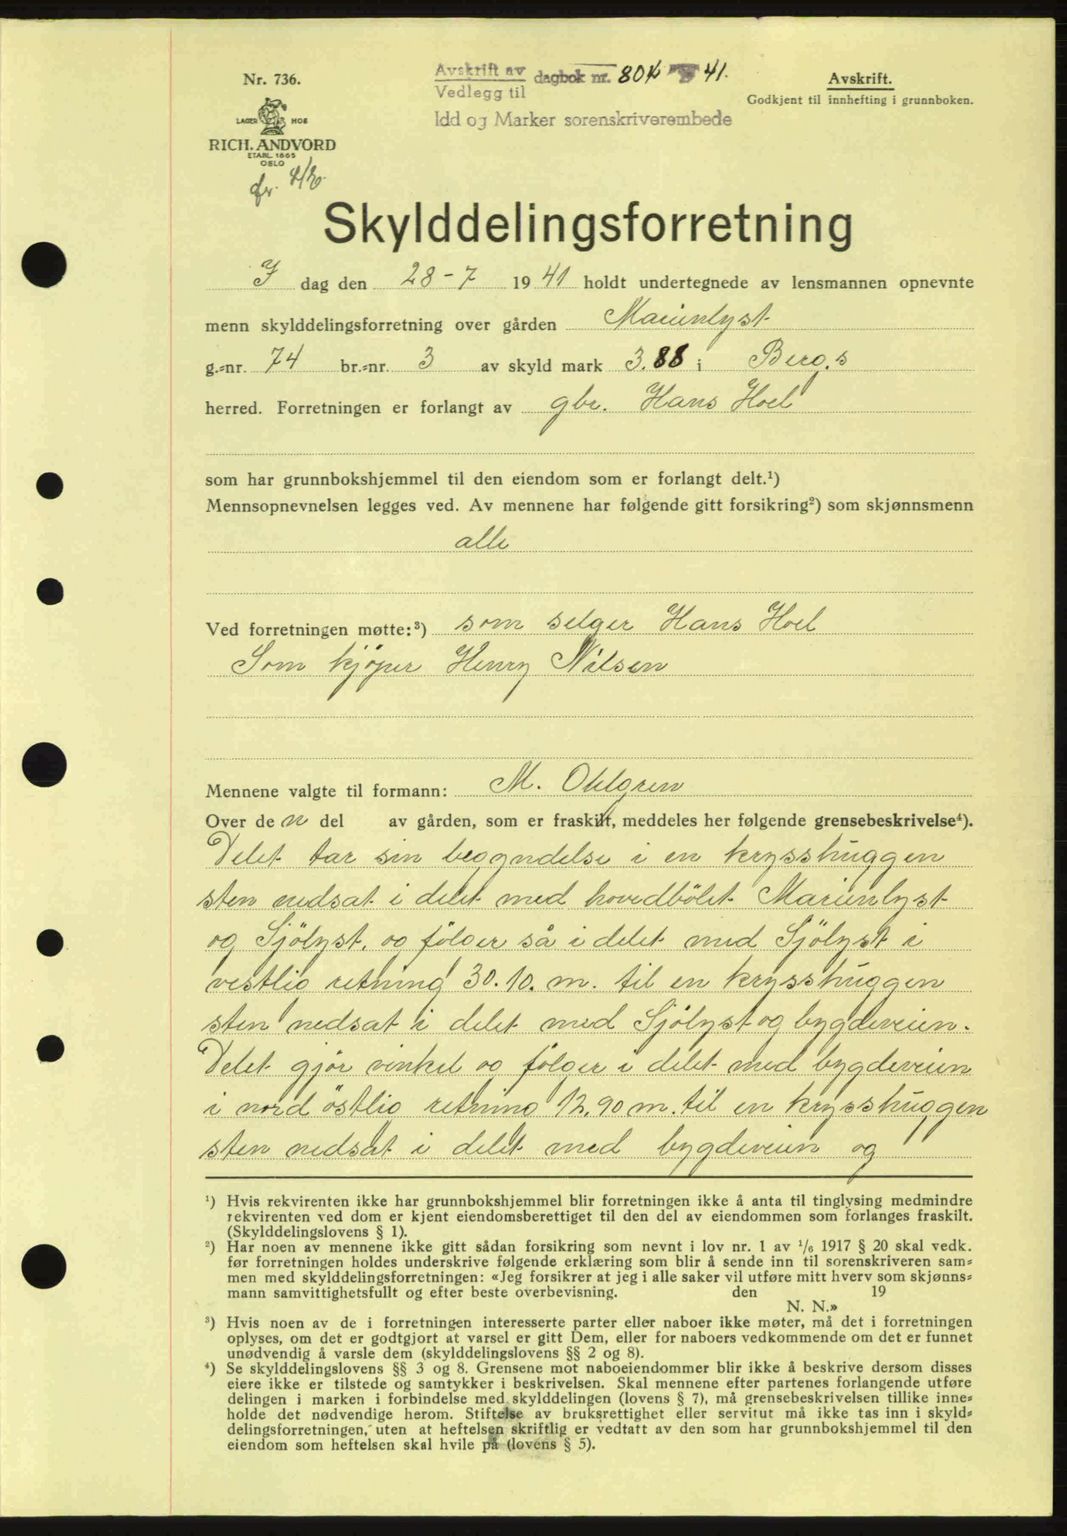 Nr. 736.
LAGER HOS
RICH. ANDVORD
ETABL. 1865
OSLO
Avskrift av
Vedlegg til
dagbok nr. 804 41.
Idd og Marker sorenskriverembede
Avskrift.
Godkjent til innhefting i grunnboken.
Skylddelingsforretning
I dag den 28-7 1941 holdt undertegnede av lensmannen opnevnte
menn skylddelingsforretning over gården Marienlyst
g.=nr. 74 br.=nr. 3 av skyld mark 3.88 i Berg,s
herred. Forretningen er forlangt av gbr. Hans Hoel
som har grunnbokshjemmel til den eiendom som er forlangt delt.¹)
Mennsopnevnelsen legges ved. Av mennene har følgende gitt forsikring²) som skjønnsmenn
alle
Ved forretningen møtte:³) som selger Hans Hoel
Som kjöper Henry Nilsen
Mennene valgte til formann: M. Ohlgren
Over de n del av gården, som er fraskilt, meddeles her følgende grensebeskrivelse⁴).
Delet tar sin begyndelse i en krysshuggen
sten nedsat i delet med hovedbölet Marienlyst
og Sjölyst, og fölger så i delet med Sjölyst i
vestlig retning 30.10. m. til en krysshuggen
sten nedsat i delet med Sjölyst og bygdeveien.
Delet gjör vinkel og fölger i delet med bygdeveien
i nord östlig retning 12,90 m. til en krysshuggen
sten nedsat i delet med bygdeveien og
¹) Hvis rekvirenten ikke har grunnbokshjemmel blir forretningen ikke å anta til tinglysing medmindre
rekvirenten ved dom er kjent eiendomsberettiget til den del av eiendommen som forlanges fraskilt.
(Skylddelingslovens § 1).
²) Har noen av mennene ikke gitt sådan forsikring som nevnt i lov nr. 1 av ¹/₆ 1917 § 20 skal vedk.
før forretningen holdes underskrive følgende erklæring som blir å sende inn til sorenskriveren sam=
men med skylddelingsforretningen: «Jeg forsikrer at jeg i alle saker vil utføre mitt hverv som skjønns=
mann samvittighetsfullt og efter beste overbevisning. den 19
N. N.»
³) Hvis noen av de i forretningen interesserte parter eller naboer ikke møter, må det i forretningen
oplyses, om det er godtgjort at varsel er gitt Dem, eller for naboers vedkommende om det er funnet
unødvendig å varsle dem (skylddelingslovens §§ 2 og 8).
⁴) Se skylddelingslovens §§ 3 og 8. Grensene mot naboeiendommer blir ikke å beskrive dersom disses
eiere ikke er tilstede og samtykker i beskrivelsen. Skal mennene efter partenes forlangende utføre
delingen i marken i forbindelse med skylddelingen (lovens § 7), må grensebeskrivelsen tillike inne=
holde det nødvendige herom. Stiftelse av bruksrettighet eller servitut må ikke tas inn i skyld=
delingsforretningen, uten at heftelsen skriftlig er vedtatt av den som har grunnbokshjemmel til den
eiendom som heftelsen skal hvile på (lovens § 5).